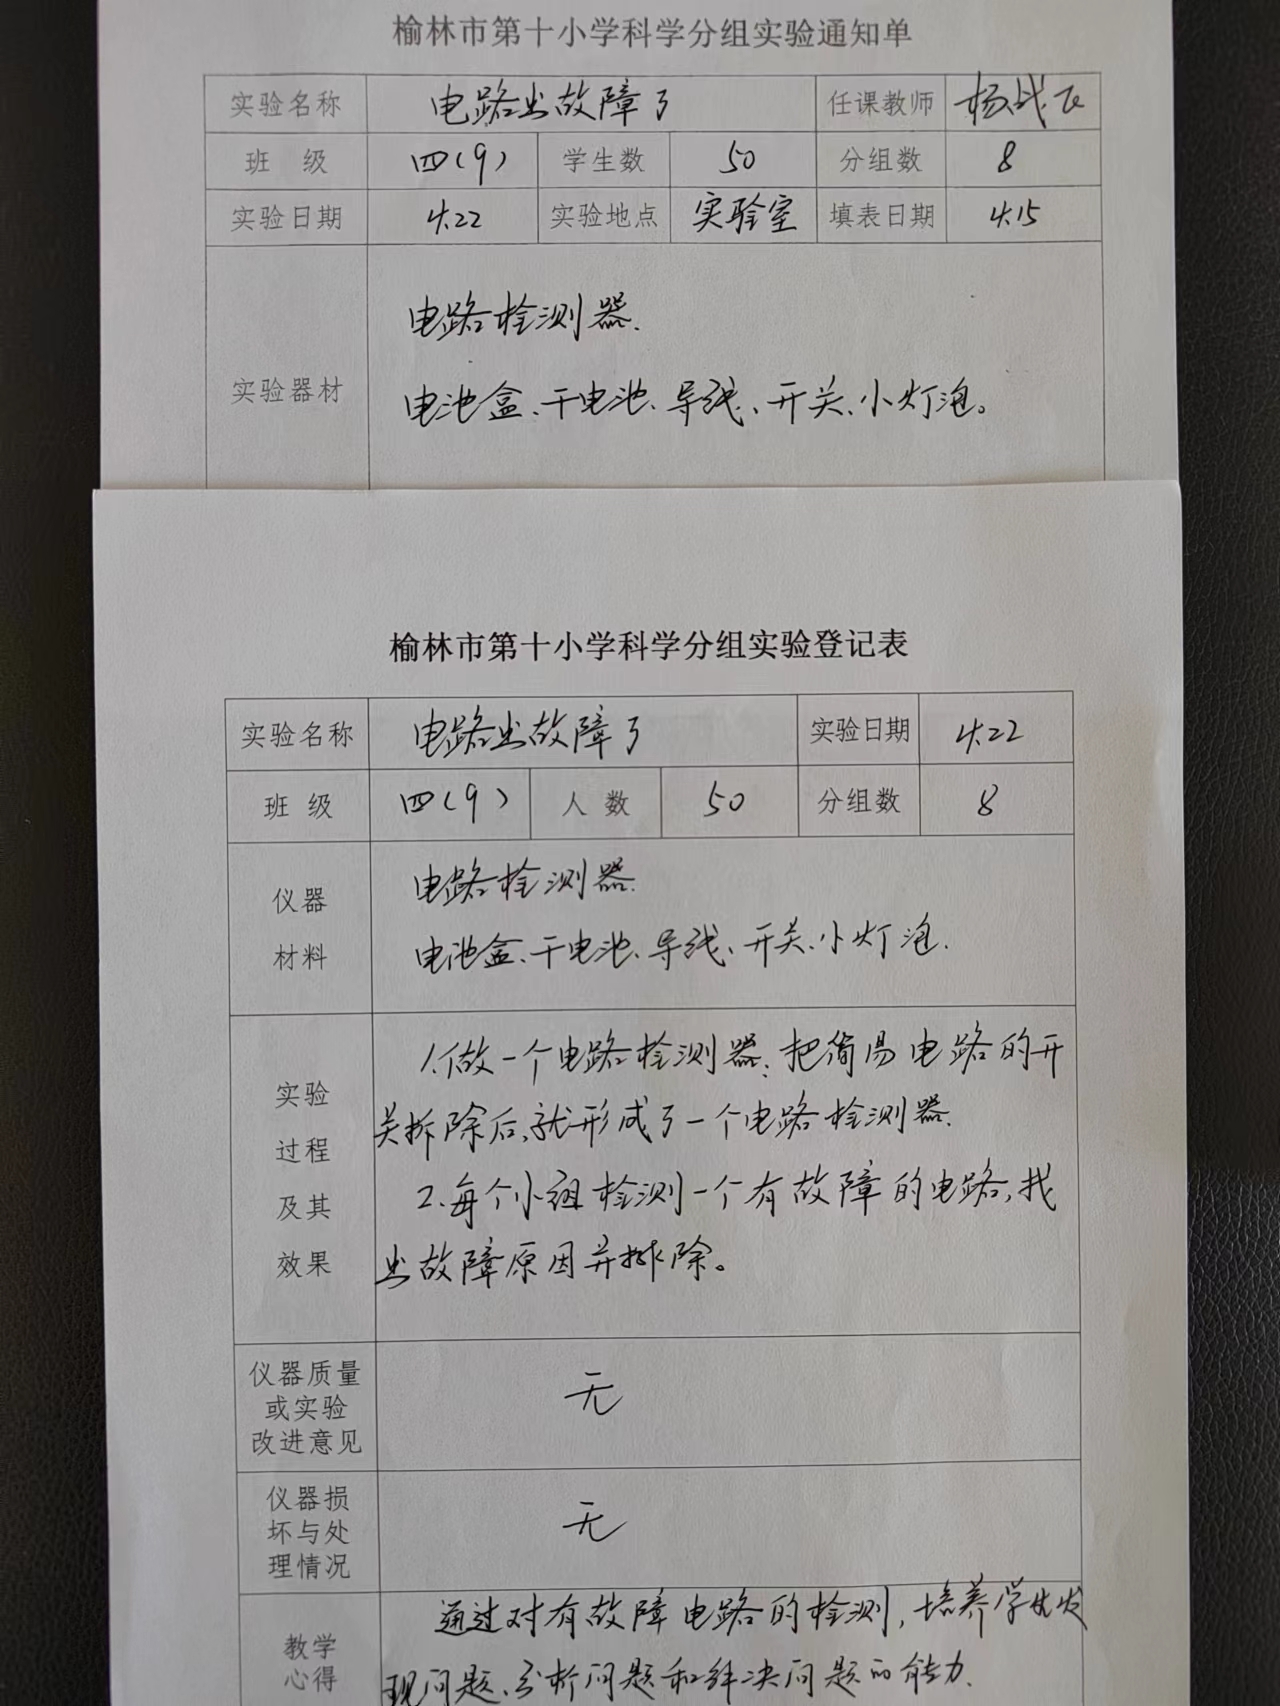 榆林市第十小学科学分组实验通知单
实验名称 电路出故障了 任课教师 杨战飞
班 级 四(9) 学生数 50 分组数 8
实验日期 4.22 实验地点 实验室 填表日期 4.15
实验器材
电路检测器.
电池盒、干电池、导线、开关、小灯泡。
榆林市第十小学科学分组实验登记表
实验名称 电路出故障了 实验日期 4.22
班 级 四(9) 人 数 50 分组数 8
仪器
材料
电路检测器.
电池盒、干电池、导线、开关、小灯泡.
实验
过程
及其
效果
1.做一个电路检测器:把简易电路的开
关拆除后,就形成了一个电路检测器.
2.每个小组检测一个有故障的电路,找
出故障原因并排除。
仪器质量
或实验
改进意见
无
仪器损
坏与处
理情况
无
教学
心得
通过对有故障电路的检测,培养学生发
现问题、分析问题和解决问题的能力.